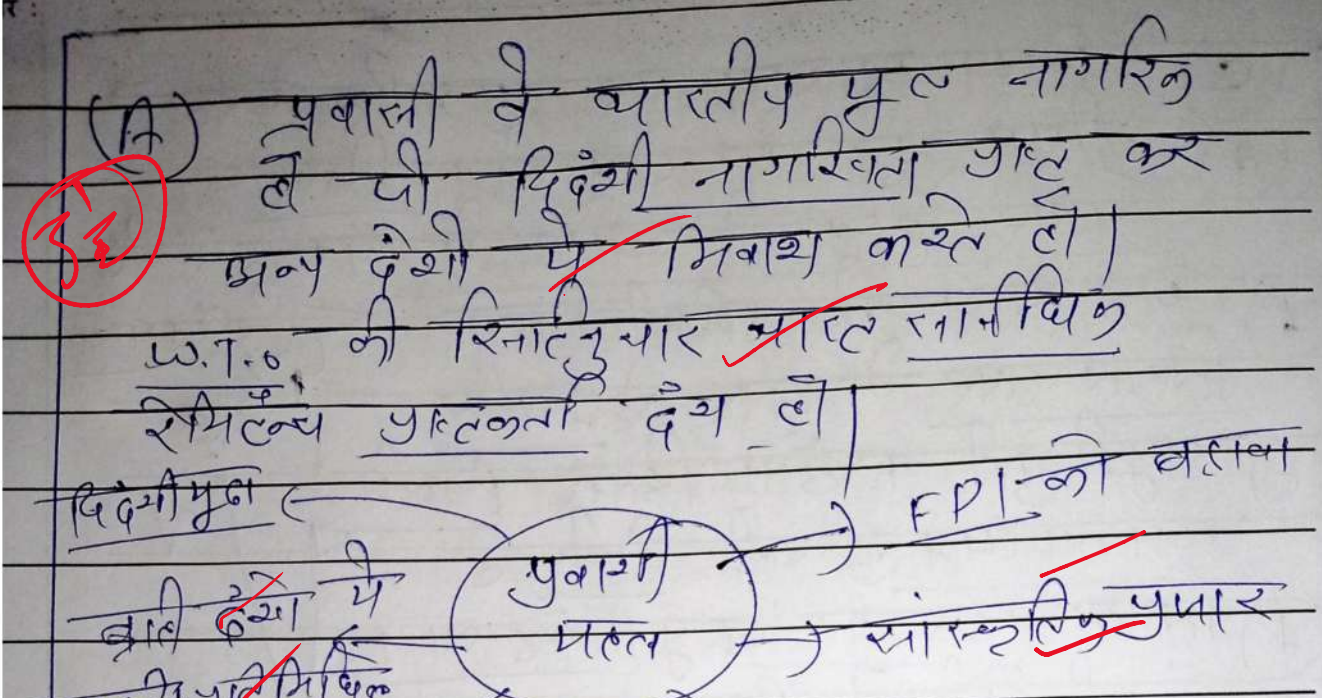 (A) प्रवासी वे भारतीय मूल नागरिक
है जो विदेशी नागरिकता प्राप्त कर
अन्य देशो मे निवाश करते है।
3½
W.T.O की रिपोर्टनुसार भारत सार्वाधिक
रेमिटेन्स प्राप्तकर्ता देश है।
विदेशी मुद्रा
FPI को बढ़ावा
प्रवाशी
महत्व
बाह्य देशो मे
सांस्कृतिक प्रसार